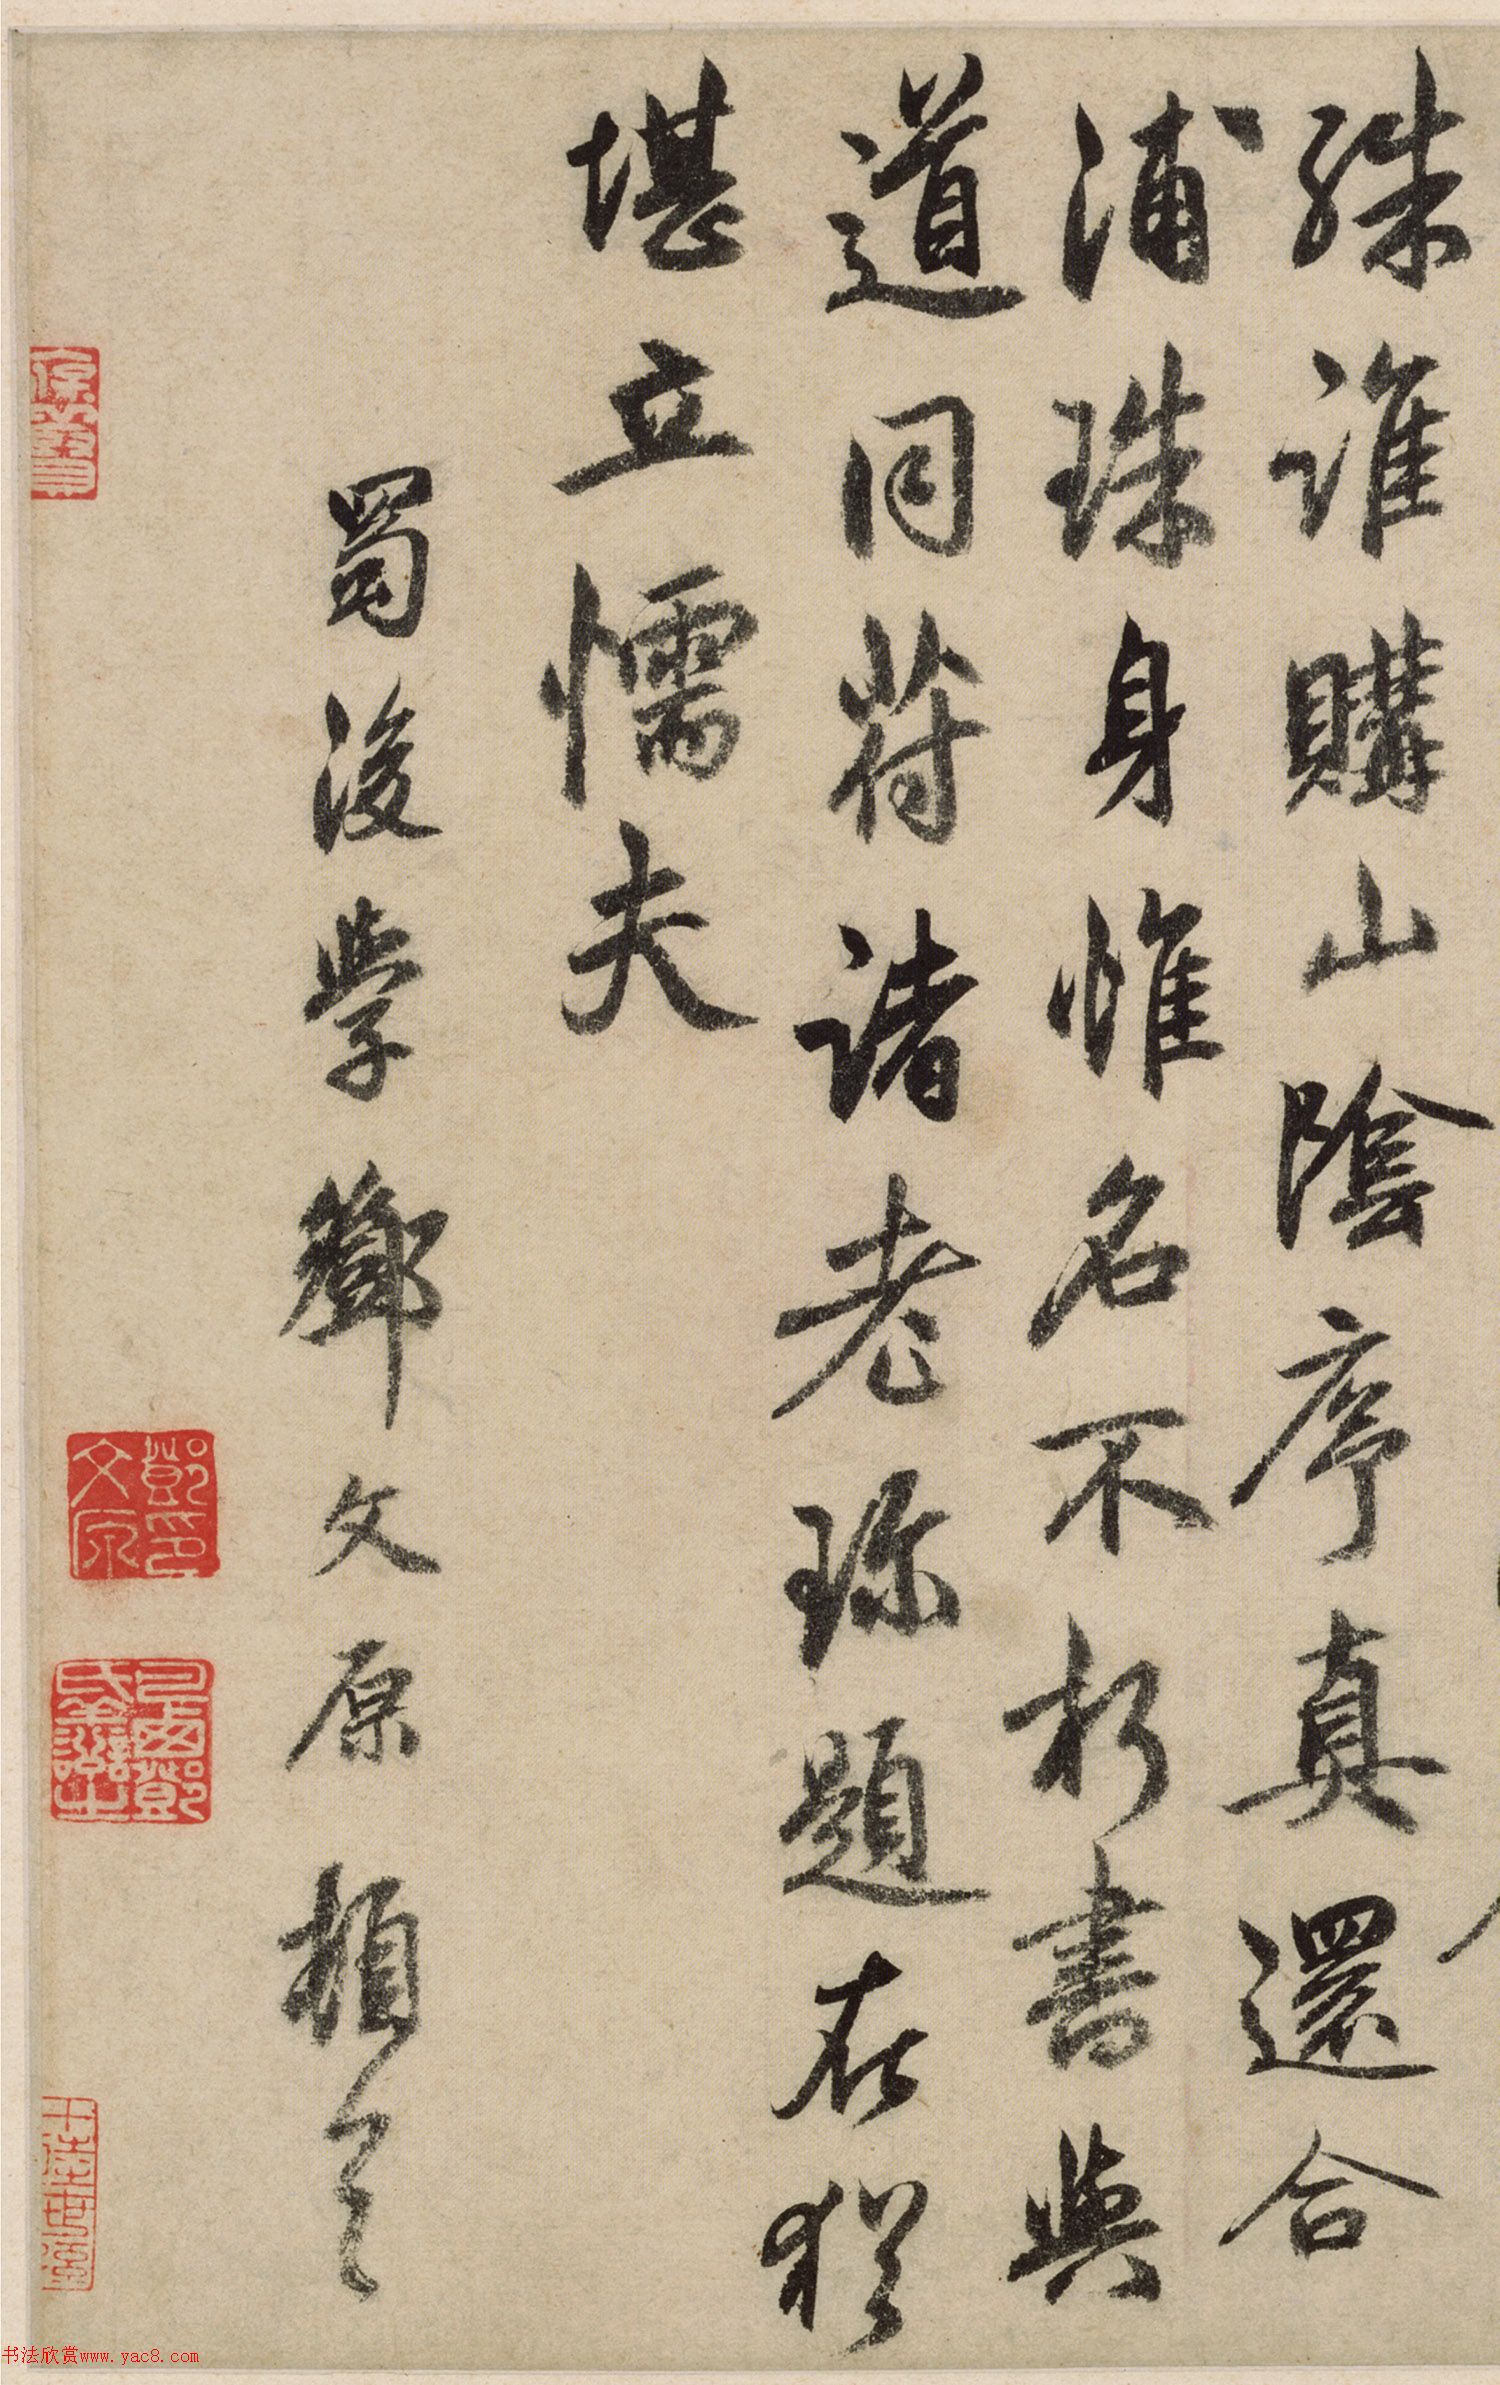 殊誰購山陰序真還合
浦珠身惟名不朽書與
道同符諸老珎題在猶
堪立懦夫
蜀後學鄧文原頓首
鄧印文原
书法欣赏www.yac8.com